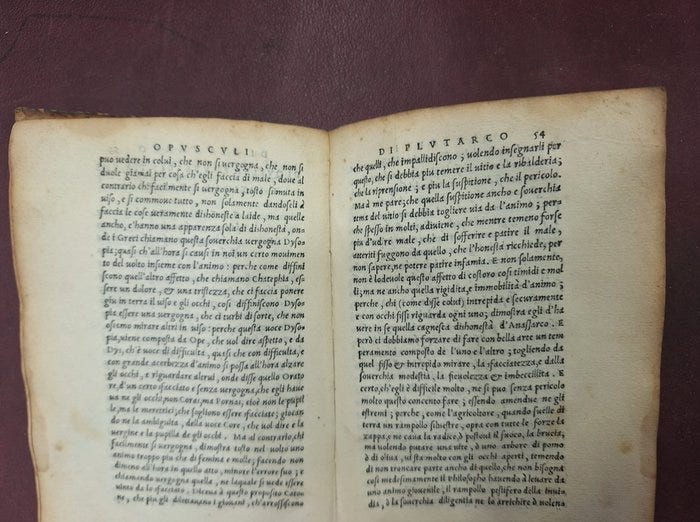 OPVSCVLI
puo vedere in colui, che non si vergogna, che non si
duole giamai per cosa ch'egli faccia di male, doue al
contrario chi facilmente si uergogna, tosto si muta in
uiso, e si commoue tutto, non solamente dandoseli à
faccia le cose ueramente dishoneste a laide, ma quelle
ancho, c'hanno una apparenza sola di dishonesta, on-
de i Greci chiamano questa souerchia uergogna Dyso-
pia; quasi ch'all'hora si causi in noi un certo mouimen-
to del uolto insieme con l'animo: perche come diffini
scono quell'altro affetto, che chiamano Chatephia, es-
sere un dolore, & una tristezza, che ci faccia pone-
giu in terra il uiso e gli occhi, cosi diffiniscono Dyso-
pia essere una uergogna, che ci turbi di sorte, che non
osiamo mirare altri in uiso: perche questa uoce Dyso-
pia, uiene composta da Ope, che uol dire aspetto, e da
Dys, ch'è uoce di difficulta, quasi che con difficulta, e
con grande acerbezza d'animo si possa all'hora alzare
gli occhi, e riguardare alcrui, onde disse quello Orato
re, d'un certo sfacciato e senza uergogna, che egli haue
ua ne gli occhi non Coras, ma Pornas, cioè non le pupil
le, ma le meretrici; che sogliono essere sfacciate; giocan
do ne la ambiguita, della uoce Core, che uol dire e la
uergine e la pupilla de gli occhi. Ma al contrario, chi
facilmente si uergogna, dimostra tosto nel uolto uno
animo troppo piu che di femina e molle; facendo non
dimeno all'hora in quello atto, minore l'errore suo; e
chiamando uergogna quella, ne laquale si uede esser
uinto da lo sfacciato. Diceua à questo proposito Cato-
ne, che piu gli dilettauano i giouani, ch'arrossiscono
DI PLVTARCO 54
che quelli, che impallidiscono; uolendo insegnarli per
questo, che si debbia piu temere il uitio e la ribalderia;
che la riprensione; e piu la suspitione, che il pericolo.
Ma à me pare; che quella suspitione ancho e souerchia
tema del uitio si debba togliere uia da l'animo; percio
che spesso in molti, aduiene, che mentre temeno forse
piu d'udire male, che di sofferire e patire il male,
atteriti fuggono da quello, che l'honesta ricchiede, per
non sapere, ne potere patire infamia. E non solamente,
non è lodeuole questo affetto di costoro cosi timidi e mol
li; ma ne ancho quella rigidita, e immobilità d'animo;
perche, chi (come disse colui) intrepida e securamente
e con occhi fissi riguarda ogni uno; dimostra egli d'ha
uere in se quella cagnesca dishonestà d'Anassarco. E
però ci debbiamo forzare di fare con bella arte un tem
peramento composto de l'uno e l'altro; togliendo da
quel fisso & intrepido mirare, la sfacciatezza, e dalla
souerchia modestia, la fieuolezza & imbecilita. E
certo, ch'egli è difficile molto, ne si può senza pericolo
molto questo concento fare; essendo amendue ne gli
estremi; perche, come l'agricoltore, quando suelle di
terra un rampollo siluestre, opra con tutte le forze la
zappa, e ne caua la radice, ò postoui il fuoco, la brucia,
ma uolendo putare una uite, ò uno arbore di pomo
ò d'oliua, ui sta molto con gli occhi aperti, temendo
di non troncare parte ancho di quello, che non bisogna
cosi medesimamente il Philosopho hauendo à leuare da
uno animo giouenile, il rampollo pestifero della inui-
dia, ò la souerchia diligentia ne lo arrichire ò uolena